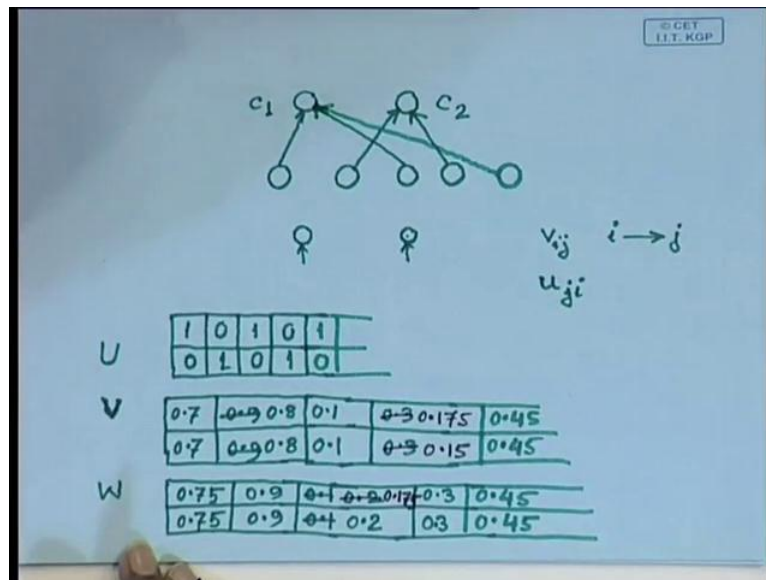 © CET
I.I.T. KGP
C1 C2
Vij i → j
uji
U
1 0 1 0 1
0 1 0 1 0
V
0.7 0.9 0.8 0.1 0.3 0.175 0.45
0.7 0.9 0.8 0.1 0.3 0.15 0.45
W
0.75 0.9 0.1 0.2 0.17 0.3 0.45
0.75 0.9 0.1 0.2 0.3 0.45